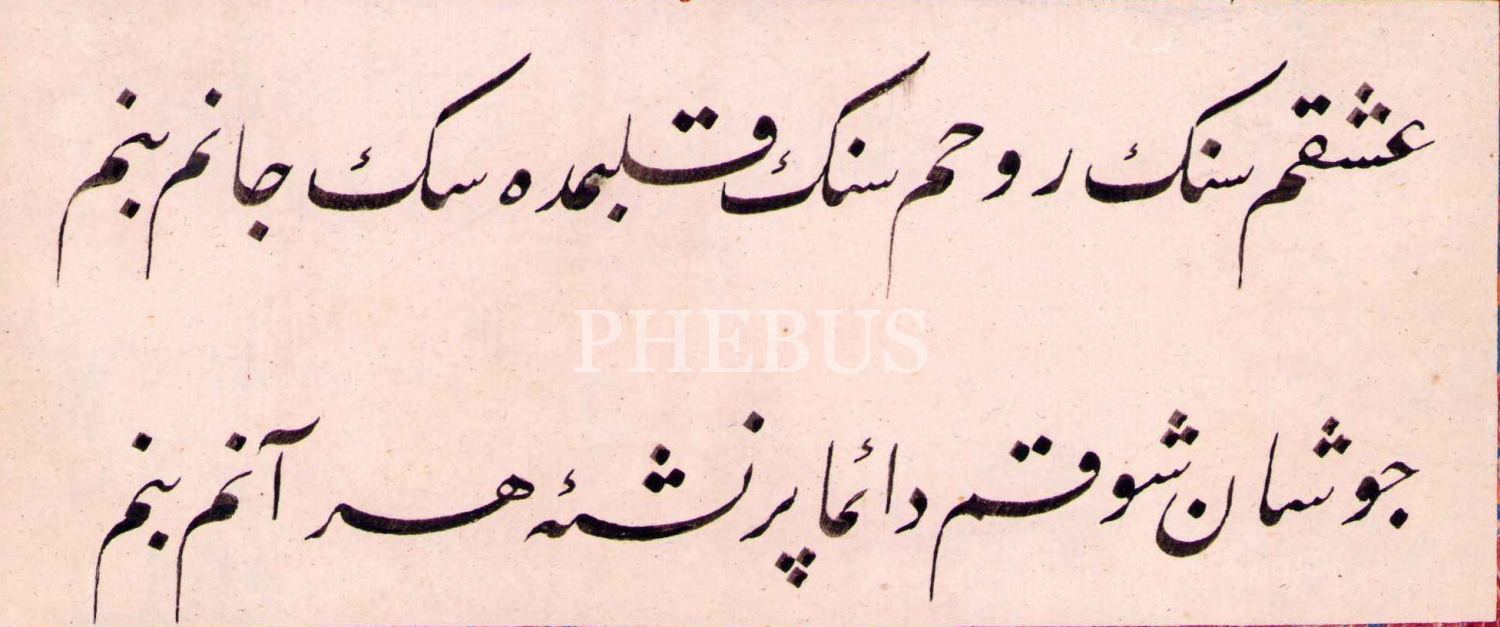 عشقم سنك روحم سنك قلبمده سنك جانم بنم
PHEBUS
جوشان شوقم دائما پر نشئه هر آنم بنم